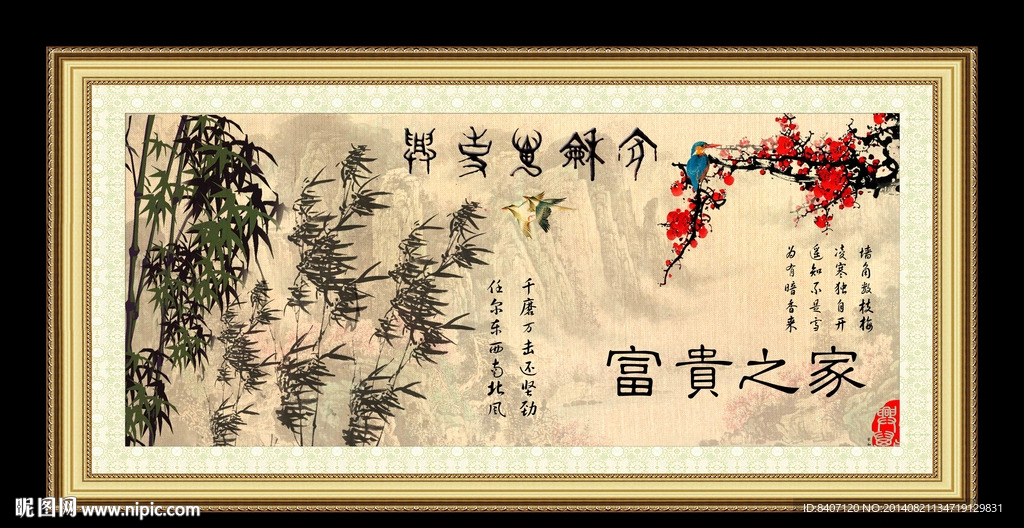 家龢萬事興
墙角数枝梅
凌寒独自开
遥知不是雪
为有暗香来
千磨万击还坚劲
任尔东西南北风
富貴之家
昵图网 www.nipic.com
ID:8407120 NO:20140821134719129831